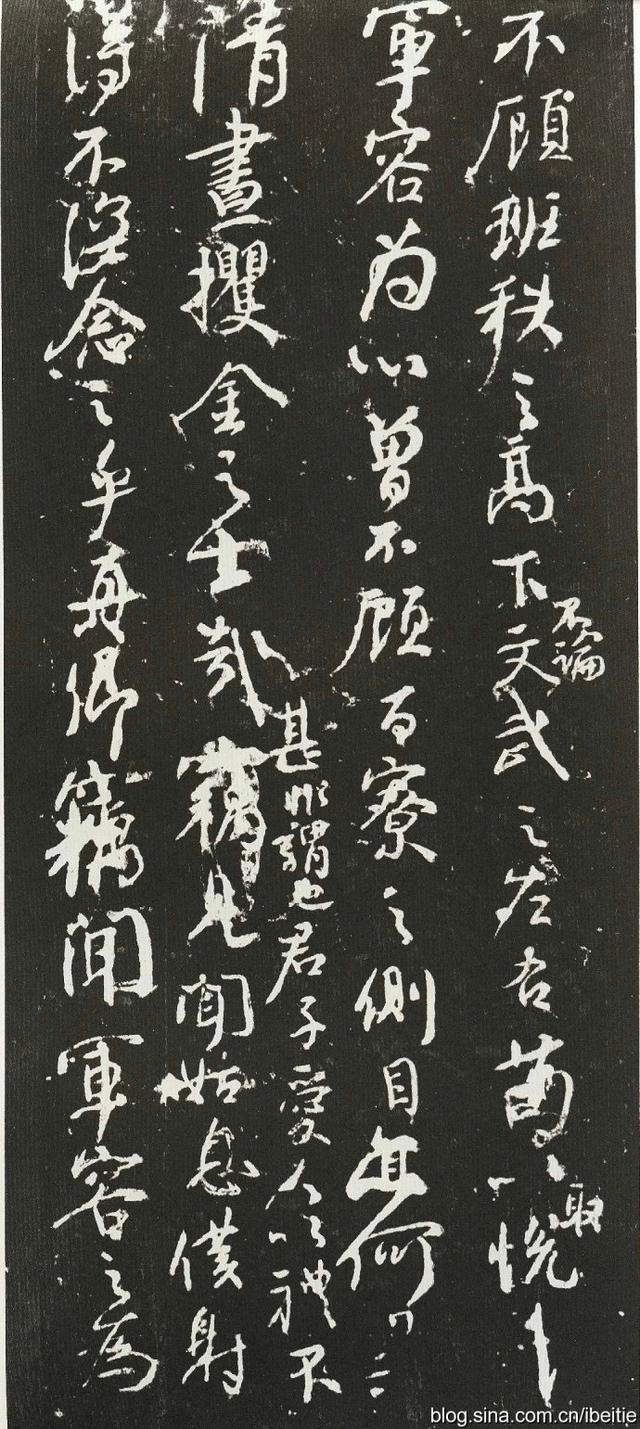 不顧班秩之高下文武之左右苟以悅
不論
取
軍容為心曾不顧百寮之側目亦何
甚非謂也君子愛人以禮不
清晝攫金之士哉竊見聞姑息僕射
得不深念之乎真卿竊聞軍容之為
blog.sina.com.cn/ibeitie